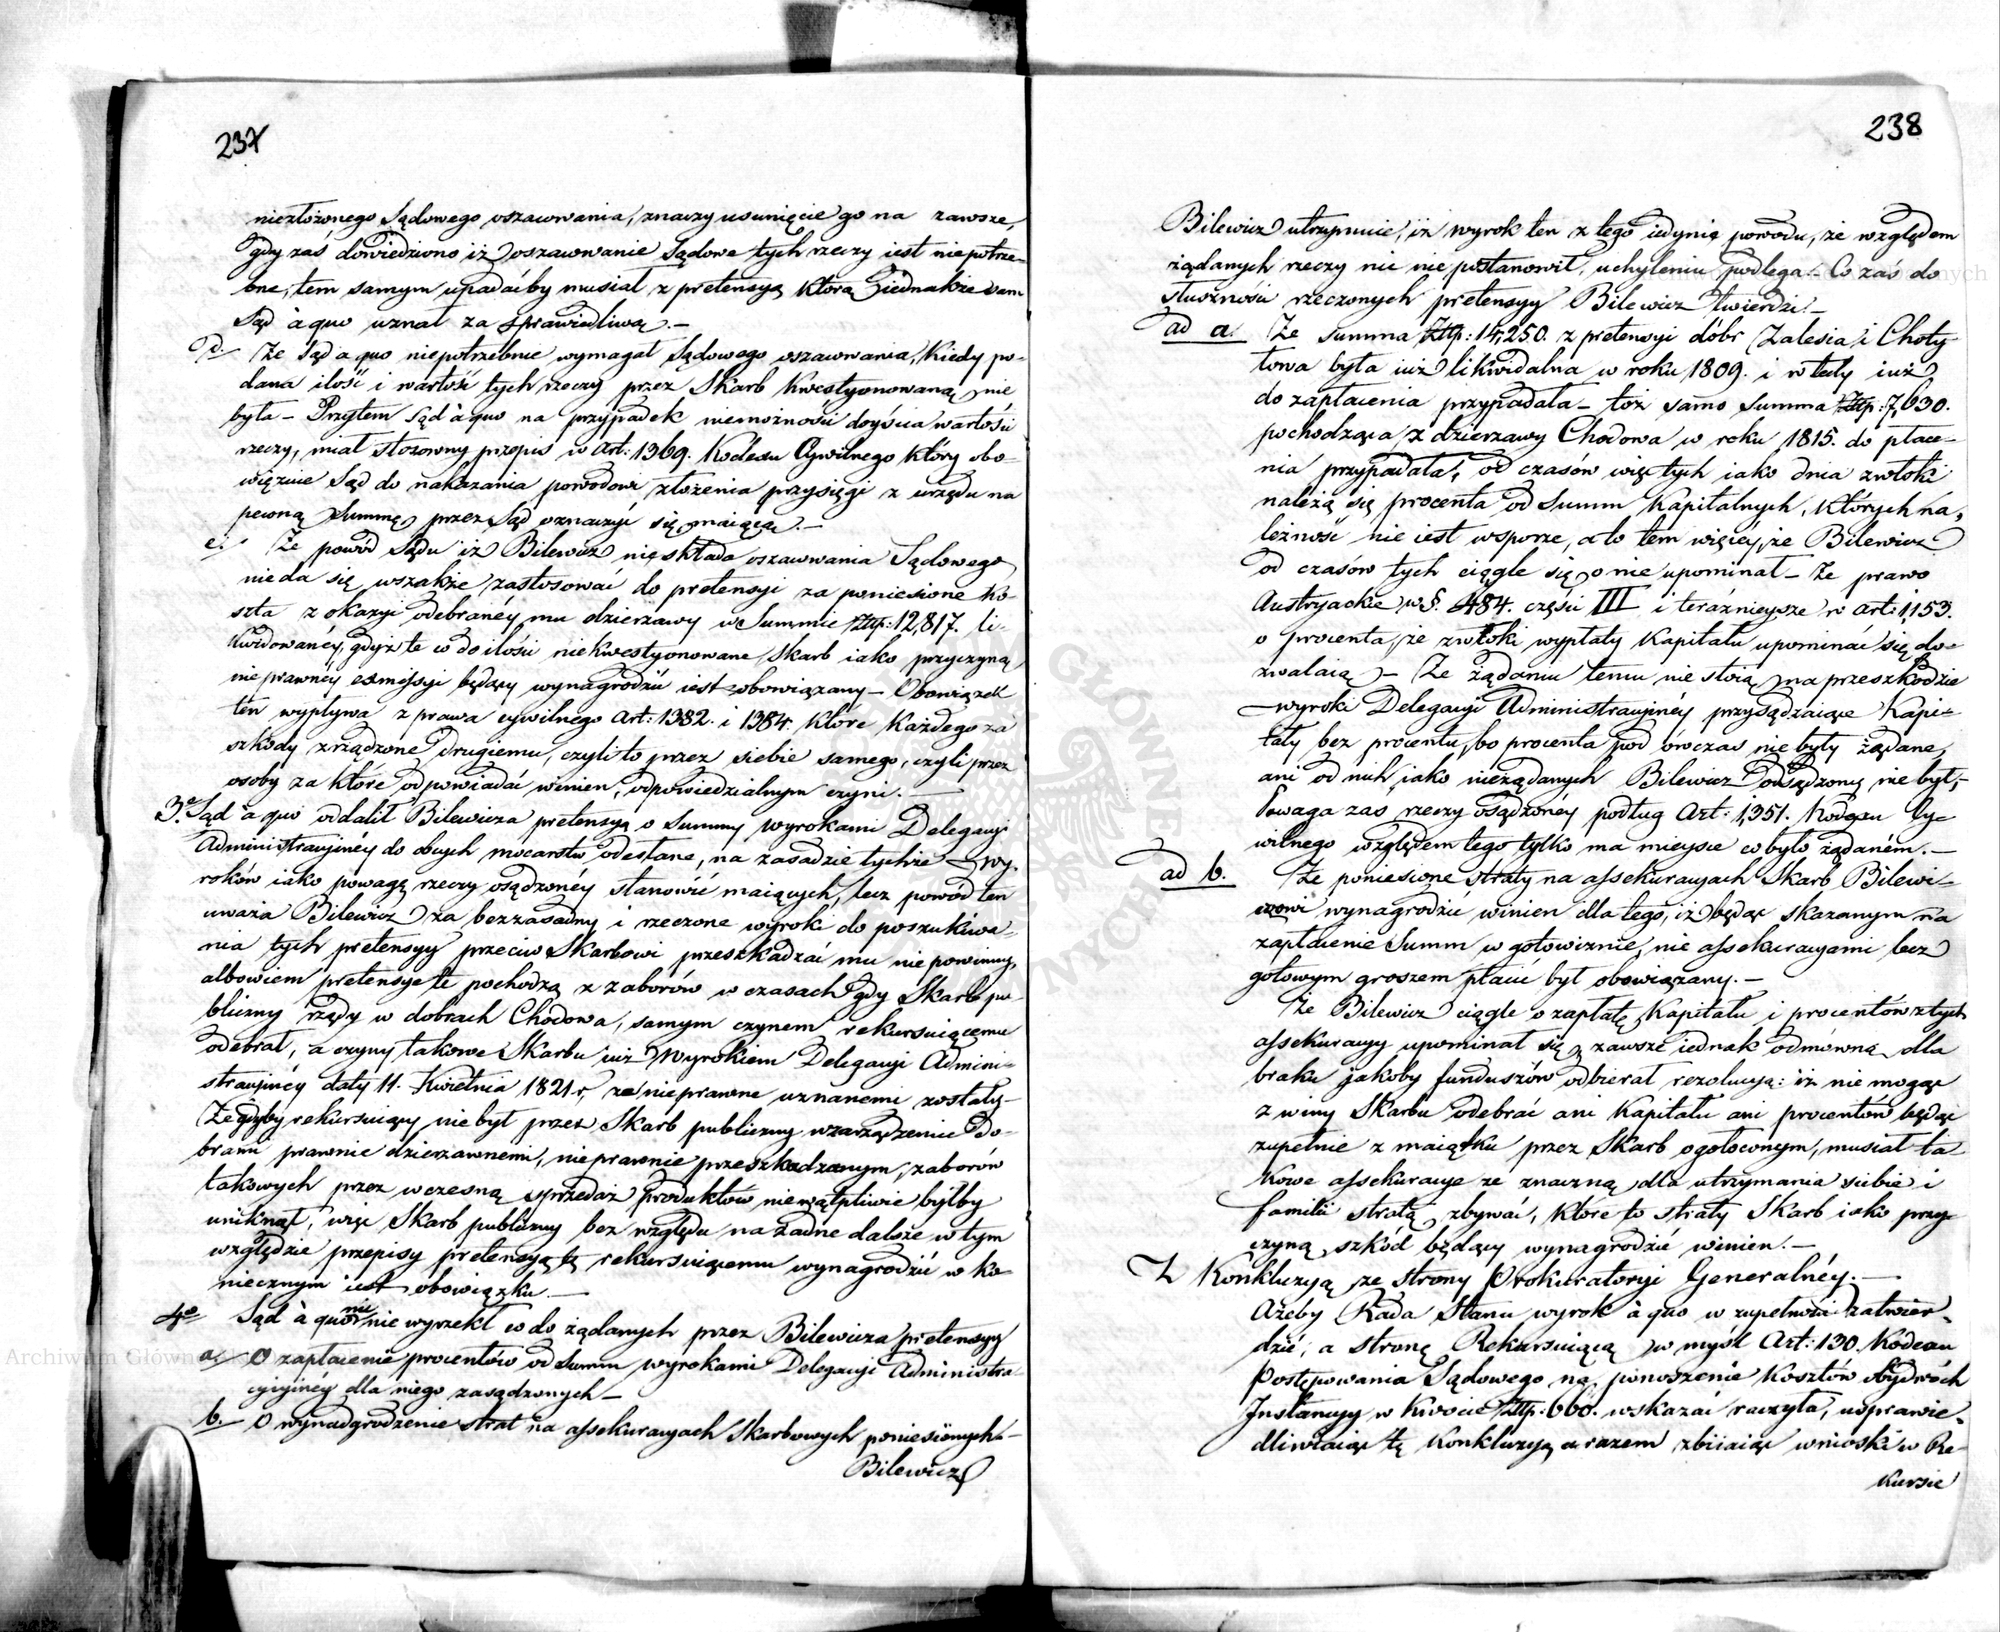 237
niezłożonego Sądowego oszacowania, znaczy usunięcie go na zawsze,
gdy zaś dowiedziono iż oszacowanie Sądowe tych rzeczy iest niepotrze-
bne, tem samym upadaćby musiał z pretensyą którą Jednakże sam
Sąd à quo uznał za sprawiedliwą.—
d. Że Sąd a quo niepotrzebnie wymagał Sądowego oszacowania, kiedy po-
dana ilość i wartość tych rzeczy przez Skarb kwestyonowaną nie
była — Przytem Sąd à quo na przypadek niemożności doyścia wartości
rzeczy, miał stosowny przepis w Art: 1369. Kodexu Cywilnego który obo-
więzuie Sąd do nakazania powodowi złożenia przysięgi z urzędu na
pewną Summę przez Sąd oznaczyć się maiącą.—
e. Że powód Sądu iż Bilewicz nieskłada oszacowania Sądowego
nieda się wszakże zastosować do pretensyi za poniesione ko-
szta z okazyi odebranéy mu dzierzawy w Summie Złtp: 12,817. li-
kwidowanéy, gdyż te co do ilości niekwestyonowane Skarb iako przyczyną
nieprawnéy exmissyi będący wynagrodzić iest obowiązany — Obowiązek
ten wypływa z prawa cywilnego Art: 1382. i 1384. które każdego za
szkody zrządzone drugiemu, czyli to przez siebie samego, czyli przez
osoby za które odpowiadać winien, odpowiedzialnym czyni.—
3º Sąd à quo oddalił Bilewicza pretensyą o Summy wyrokami Delegacyi
Administracyinéy do obcych mocarstw odesłane, na zasadzie tychże wy-
roków iako powagę rzeczy osądzonéy stanowić maiących, lecz powód ten
uważa Bilewicz za bezzasadny i rzeczone wyroki do poszukiwa-
nia tych pretensyy przeciw Skarbowi przeszkadzać mu niepowinny,
albowiem pretensye te pochodzą z zaborów w czasach gdy Skarb pu-
bliczny rządy w dobrach Chodowa, samym czynem rekursuiącemu
odebrał, a czyny takowe Skarbu iuż Wyrokiem Delegacyi Admini-
stracyinéy daty 11. Kwietnia 1821 r, za nieprawne uznanemi zostały—
Że gdyby rekursuiący nie był przez Skarb publiczny w zarządzeniu do-
brami prawnie dzierzawnemi, nieprawnie przeszkadzanym, zaborów
takowych przez wczesną sprzedaż produktów niewątpliwie byłby
uniknął, więc Skarb publiczny bez względu na żadne dalsze w tym
względzie przepisy pretensyą tę rekursuiącemu wynagrodzić w ko-
niecznym iest obowiązku.—
4º Sąd à quo nic nie wyrzekł co do żądanych przez Bilewicza pretensyy
a. O zapłacenie procentów od Summ wyrokami Delegacyi Administra-
cyjynéy dla niego zasądzonych —
b. — O wynadgrodzenie strat na assekuracyach Skarbowych poniesionych —
Bilewicz
238
Bilewicz utrzymuie, iż wyrok ten z tego iedynie powodu, że względem
żądanych rzeczy nic nie postanowił, uchyleniu podlega — Co zaś do
słuszności rzeczonych pretensyy Bilewicz twierdzi —
ad a. Że Summa Złtp: 14,250. z pretensyi dóbr Zalesia i Choty-
towa była iuż likwidalna w roku 1809. i wtedy iuż
do zapłacenia przypadała — toż samo Summa Złtp: 7,630.
pochodząca z dzierzawy Chodowa w roku 1815. do płace-
nia przypadała, od czasów więc tych iako dnia zwłoki
należą się procenta od Summ Kapitalnych, których na-
leżność nie iest w sporze, a to tem więcéy, że Bilewicz
od czasów tych ciągle się o nie upominał — Że prawo
Austryackie w §. 484. części III i teraźnieysze w art: 1,153.
o procenta, że zwłoki wypłaty Kapitału upominać się do-
zwalaią — Że żądaniu temu nie stoią na przeszkodzie
wyroki Delegacyi Administracyinéy przysądzaiące Kapi-
tały bez procentu, bo procenta pod ówczas nie były żądane,
ani od nich iako nieżądanych Bilewicz odsądzony nie był,—
Powaga zas rzeczy osądzonéy podług Art: 1,351. Kodexu Cy-
wilnego względem tego tylko ma mieysce co było żądaném.—
ad b. Że poniesione straty na assekuracyach Skarb Bilewi-
czowi wynagrodzić winien dla tego, iż będąc skazanym na
zapłacenie Summ w gotowiznie, nie assekuracyami lecz
gotowym groszem płacić był obowiązany.—
Że Bilewicz ciągle o zapłatę Kapitału i procentów z tych
assekuracyy upominał się, zawsze iednak odmówną dla
braku jakoby funduszów odbierał rezolucyą: iż nie mogąc
z winy Skarbu odebrać ani Kapitału ani procentów będąc
zupełnie z maiątku przez Skarb ogołoconym, musiał ta-
kowe assekuracye ze znaczną dla utrzymania siebie i
familii stratą zbywać, które to straty Skarb iako przy-
czyną szkód będący wynagrodzić winien.—
Z Konkluzyą ze strony Prokuratoryi Generalnéy.—
Ażeby Rada Stanu wyrok à quo w zupełności zatwier-
dzić, a stronę Rekursuiącą w myśl Art: 130. Kodexu
Postępowania Sądowego na ponoszenie Kosztów obydwóch
Instancyy w kwocie Złtp: 660. wskazać raczyła, usprawie-
dliwiaiąc tę Konkluzyą a razem zbiiaiąc wnioski w Re-
kursie